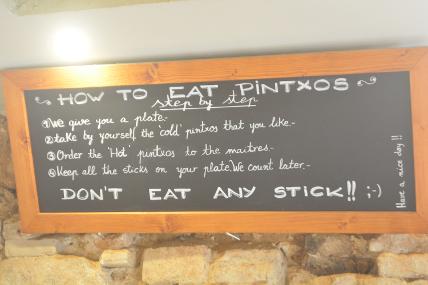 HOW TO EAT PINTXOS
step by step
① We give you a plate.-
② take by yourself the 'cold' pintxos that you like.-
③ Order the 'Hot' pintxos to the maitres.-
④ Keep all the sticks on your plate. We count later.-
DON'T EAT ANY STICK!! ;-)
Have a nice day!!